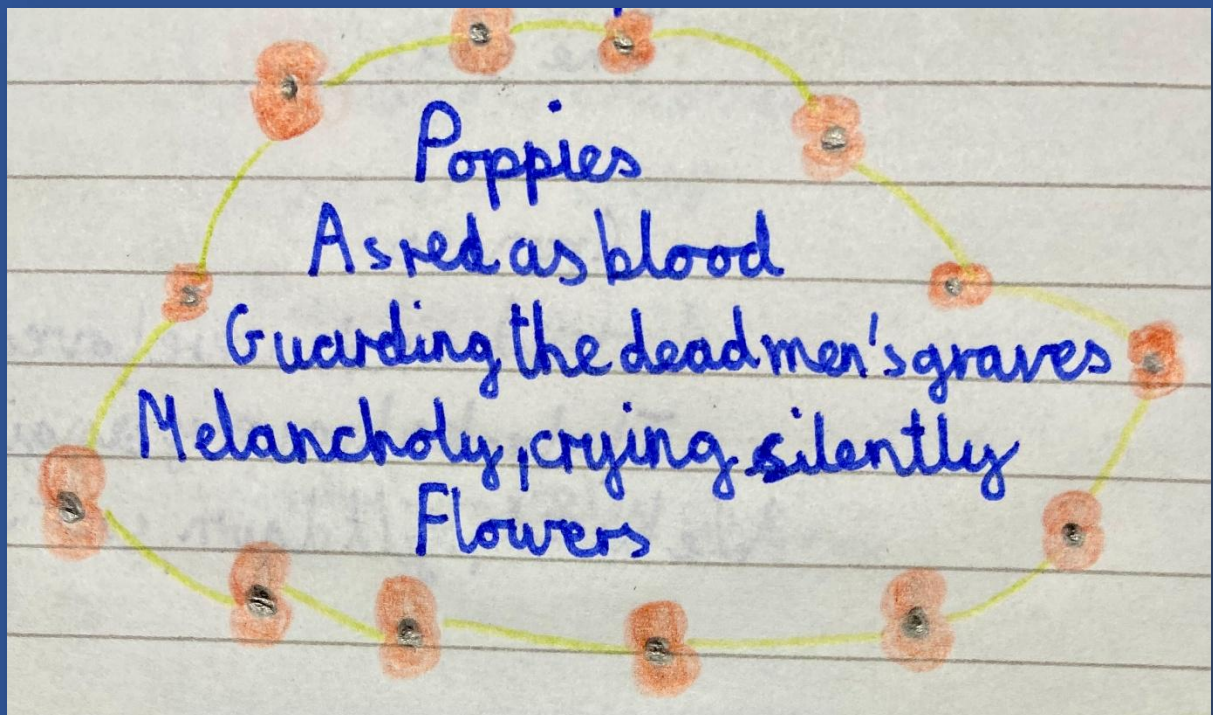 Poppies
As red as blood
Guarding the dead men's graves
Melancholy, crying silently
Flowers